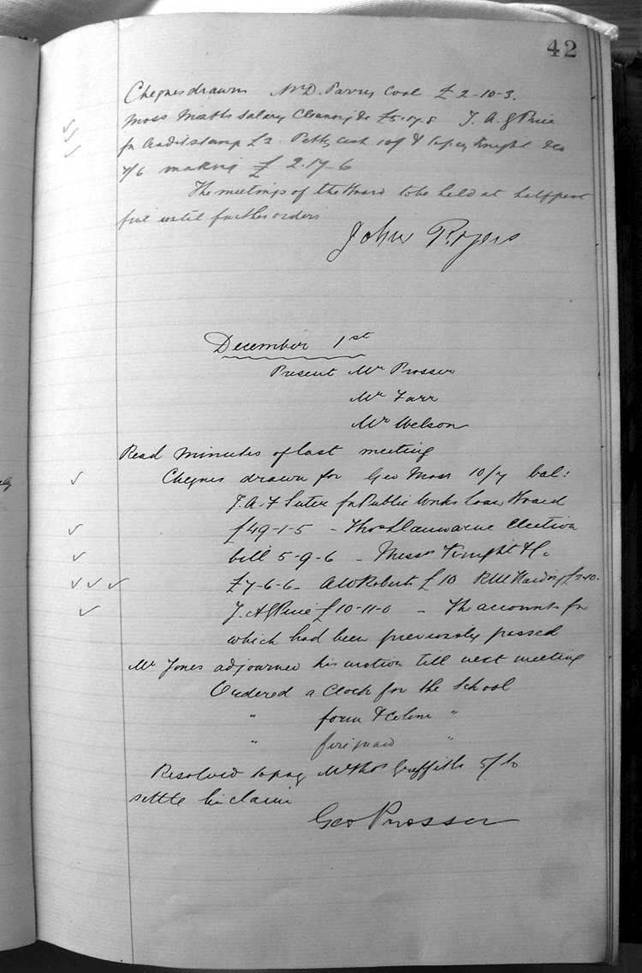 42
Cheques drawn Mr D. Parry Coal £2-10-3.
Moss Maths salary Cleaning &c £5-17-8 J. A. G Price
for Audit stamp £2. Petty cash 10/ & Knight &co
7/6 making £2.17-6
The meetings of the Board to be held at half past
five until further orders
John Rogers
December 1st
Present Mr Prosser
Mr Farr
Mr Welson
Read minutes of last meeting
Cheques drawn for Geo Moss 10/7 bal:
J. A. F Suter for Public Works Loan Board
£49-1-5 - Thos Llanwarne Election
bill 5-9-6 - Messrs Knight & Co
£7-6-6- A W Roberts £10 R W Harding £2-10-
J. A G Price £10-11-0 - The accounts for
which had been previously passed
Mr Jones adjourned his motion till next meeting
Ordered a Clock for the School
" form "
" fire guard "
Resolved to pay Mr Thos Griffiths 5/- to
settle his claim
Geo Prosser